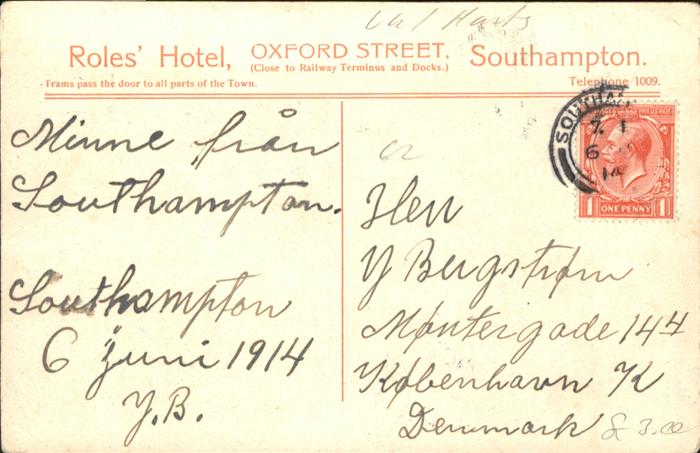 Roles' Hotel, OXFORD STREET, Southampton.
(Close to Railway Terminus and Docks.)
Trams pass the door to all parts of the Town.
Telephone 1009.
Minne från
Southampton.
Southampton
6 Juni 1914
Y.B.
SOUTHA
6
14
ONE PENNY
1 1
Herr
Y Bergstrøm
Møntergade 14 4
København K
Denmark
£ 3.00